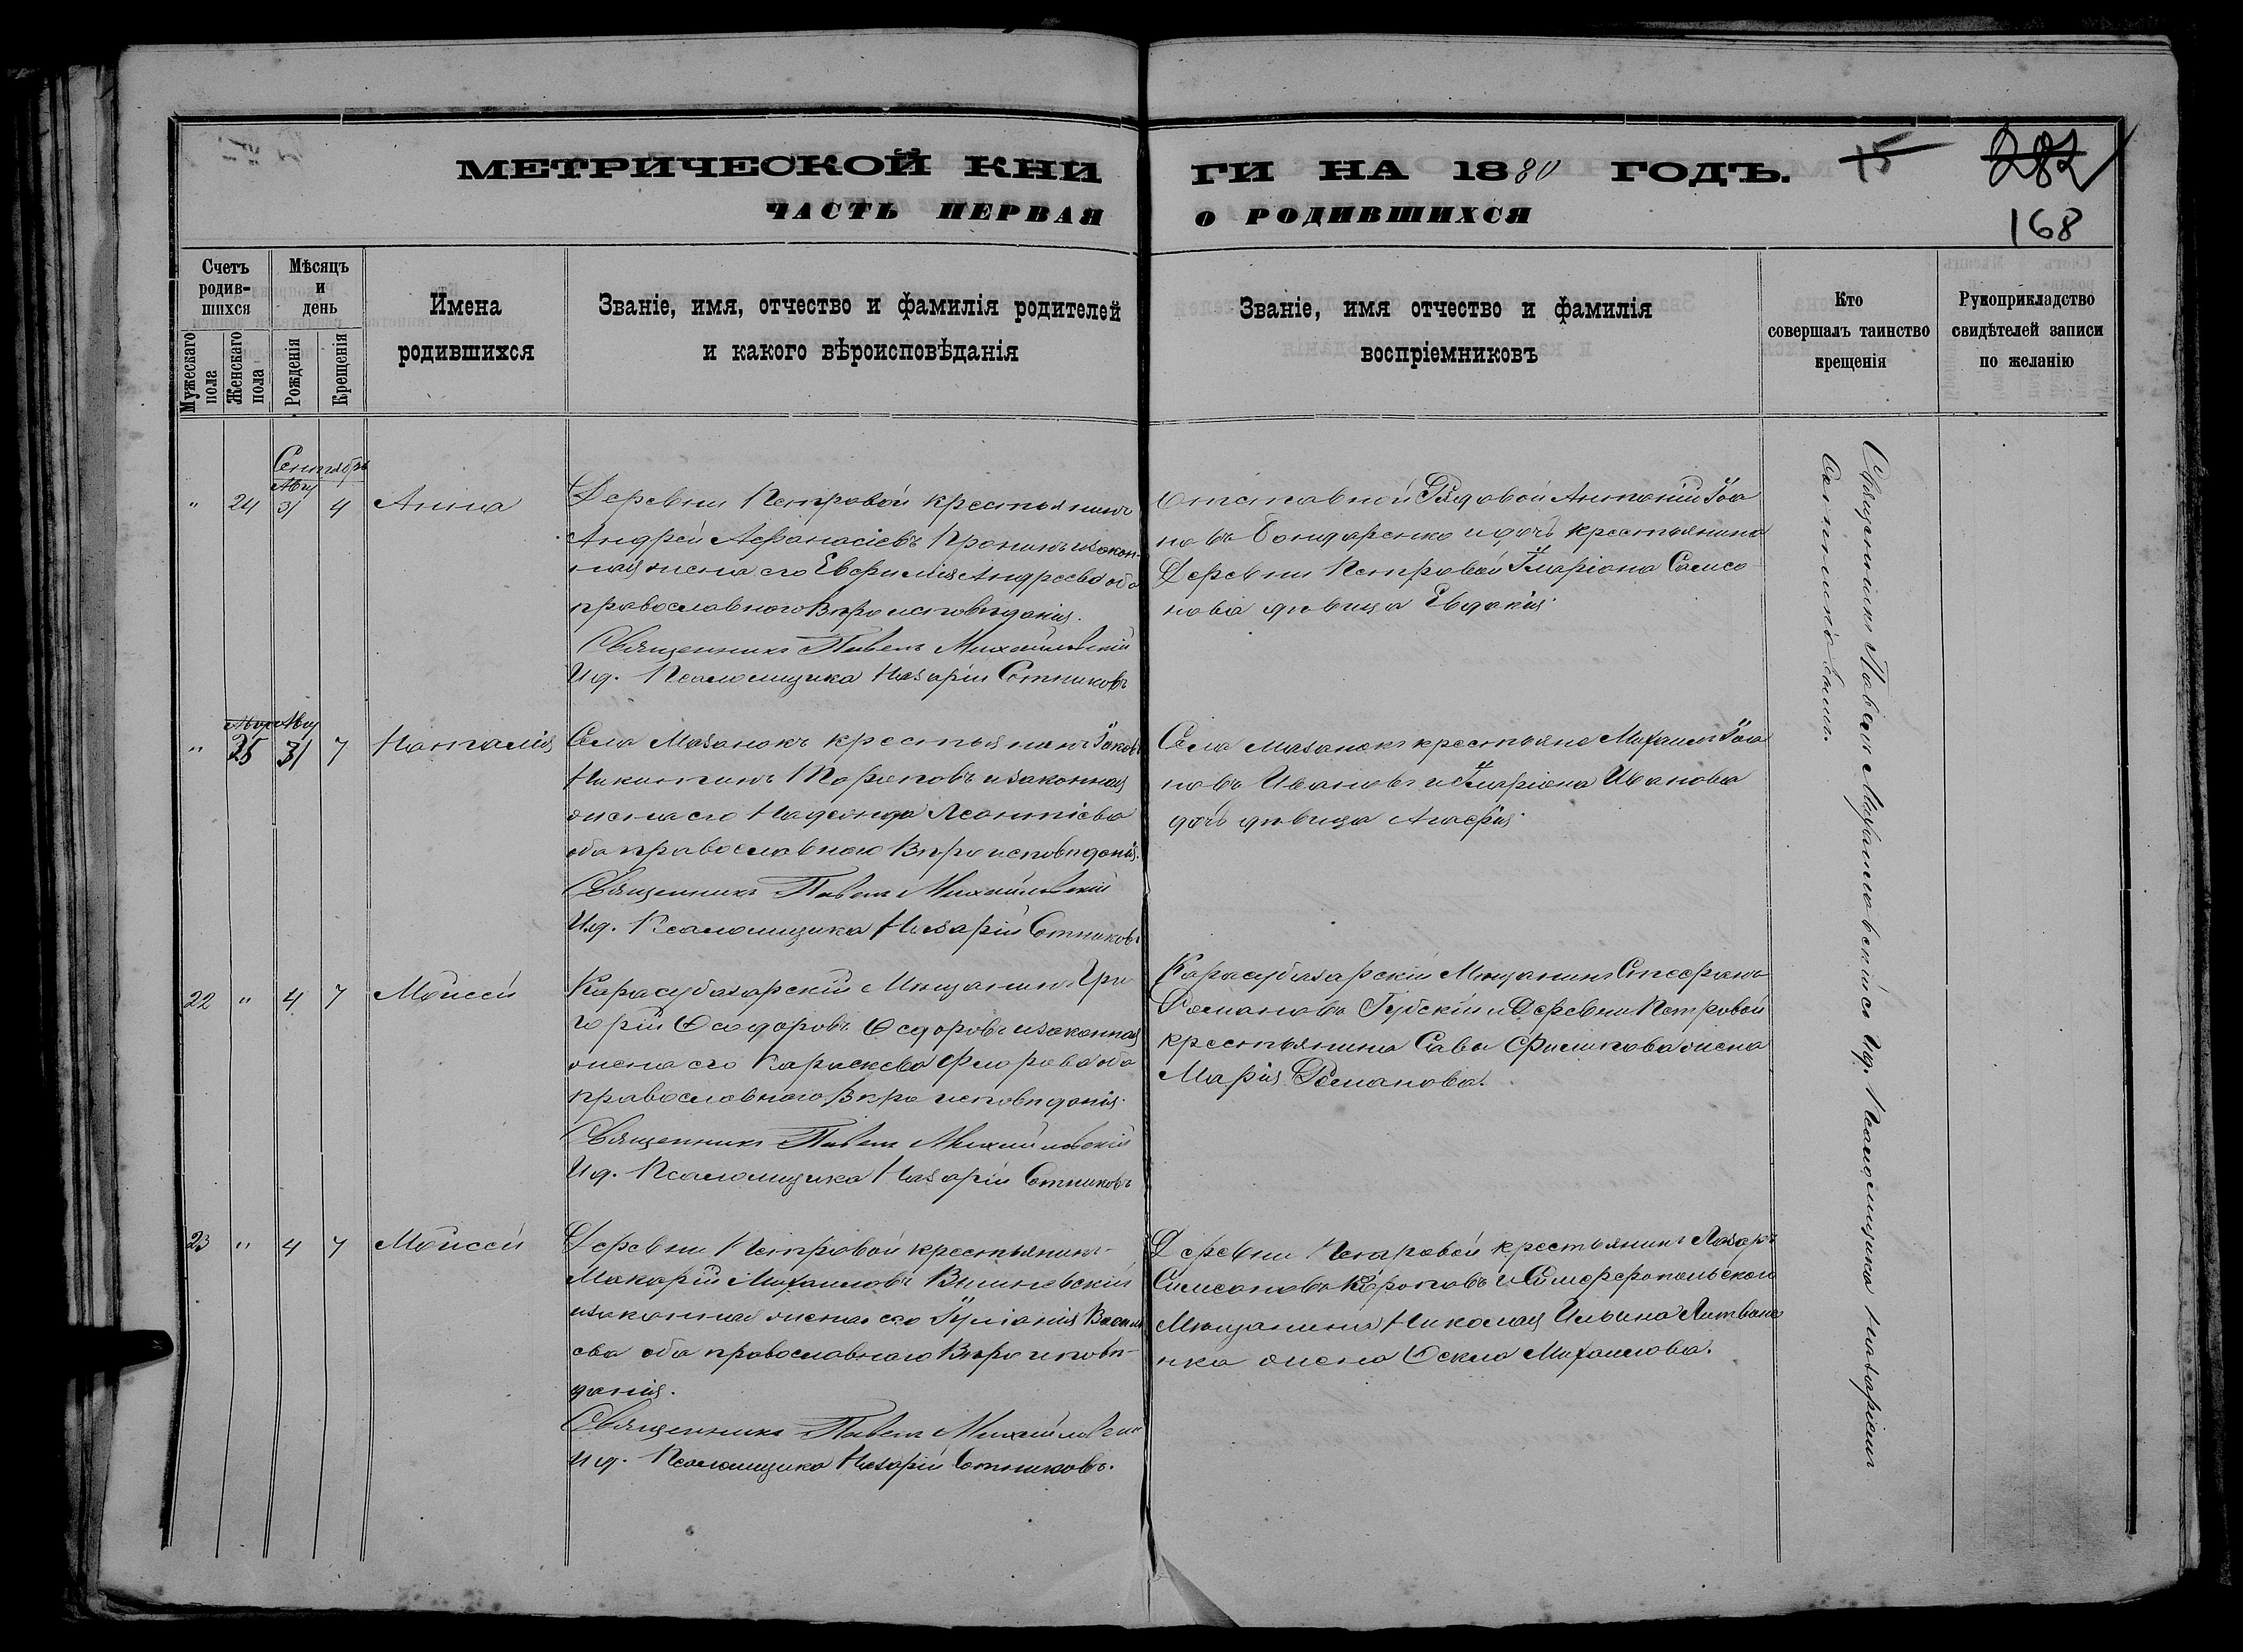 МЕТРИЧЕСКОЙ КНИ
ЧАСТЬ ПЕРВАЯ
Счетъ родив-шихся
Мѣсяцъ и день
Мужескаго пола
Женскаго пола
Рожденія
Крещенія
Имена родившихся
Званіе, имя, отчество и фамилія родителей
и какого вѣроисповѣданія
Сентябрь
" 24 Авг 31 4 Анна
Деревни Петровой крестьянинъ
Андрей Афанасіевъ Пронинъ и закон-
ная жена его Евфимія Андреева оба
православного Вѣроисповѣданія.
Священникъ Павелъ Михайловскій
И.д. Псаломщика Назарій Сотниковъ
" 25 Авг 31 7 Наталія
Села Мазанокъ крестьянинъ Іаковъ
Никитинъ и законная
жена его Надежда Леонтіева
оба православного Вѣроисповѣданія.
Священникъ Павелъ Михайловскій
И.д. Псаломщика Назарій Сотниковъ
22 " 4 7 Моисей
Карасубазарскій Мѣщанинъ Гри
горій Ѳеодоровъ Ѳедоровъ и законная
жена его Параскева Флорова оба
православного Вѣроисповѣданія.
Священникъ Павелъ Михайловскій
И.д. Псаломщика Назарій Сотниковъ
23 " 4 7 Моисей
Деревни Петровой крестьянинъ
Макарій Михаиловъ Вишневскій
и законная жена его Іуліанія Васильи
ева оба православного Вѣроисповѣ-
данія.
Священникъ Павелъ Михайловскій
И.д. Псаломщика Назарій Сотниковъ.
ГИ НА 1880 ГОДЪ.
О РОДИВШИХСЯ
75
282
168
Званіе, имя отчество и фамилія
воспріемниковъ
Кто
совершалъ таинство
крещенія
Рукоприкладство
свидѣтелей записи
по желанію
Отставной Рядовой Антоній Іоа
новъ Бондаренко и дочь крестьянина
Деревни Петровой Иларіона Самсо
нова дѣвица Евдокія.
Села Мазанокъ крестьяне Михаилъ Іоа
новъ Ивановъ и Иларіона Иванова
дочь дѣвица
Карасубазарскій Мѣщанинъ Стефанъ
Романовъ Губскій и Деревни Петровой
крестьянина Савы Филипова жена
Марія Романова.
Деревни Петровой крестьянинъ Лазарь
Самсоновъ и Симферопольского
Мѣщанина Николая Ильина Литвине
нка жена Ѳекла Михаилова.
Священникъ Павелъ Михайловскій съ И.д. Псаломщика Назаріемъ
Сотниковымъ.